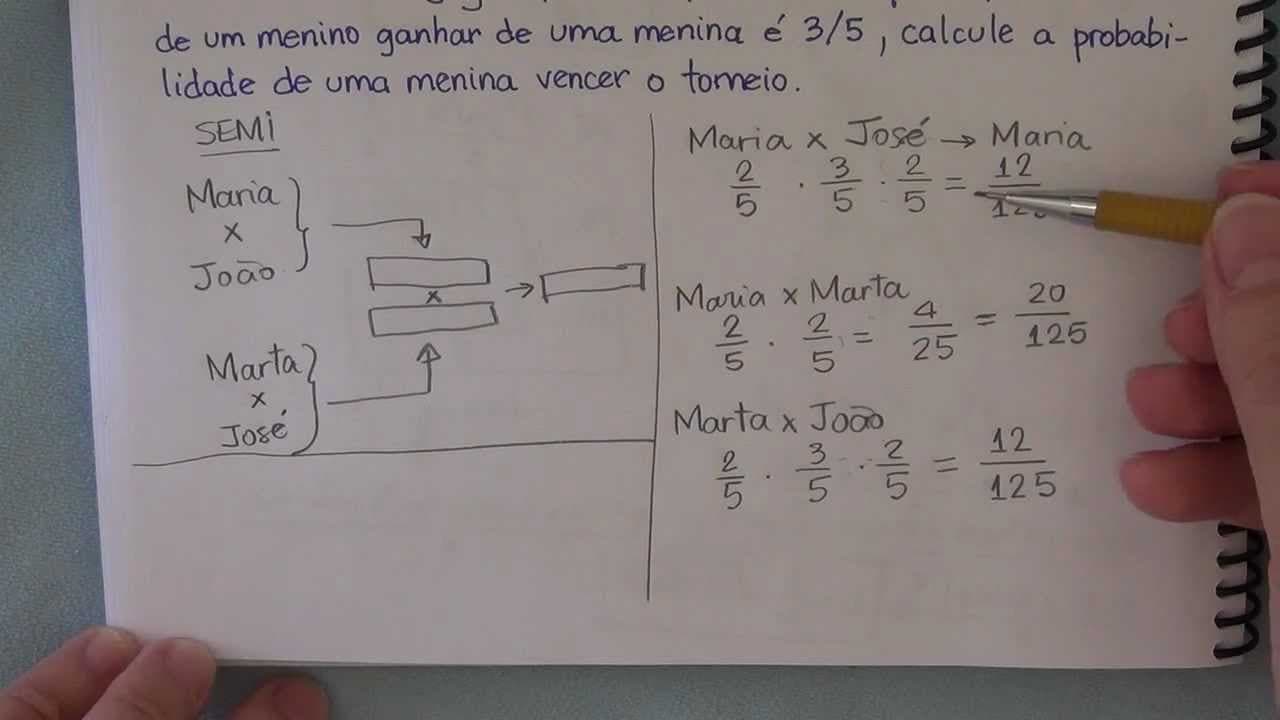 de um menino ganhar de uma menina é 3/5, calcule a probabi-
lidade de uma menina vencer o torneio.
SEMI
Maria
x
João
x
Marta
x
José
Maria x José → Maria
2/5 . 3/5 . 2/5 = 12/125
Maria x Marta
2/5 . 2/5 = 4/25 = 20/125
Marta x João
2/5 . 3/5 . 2/5 = 12/125